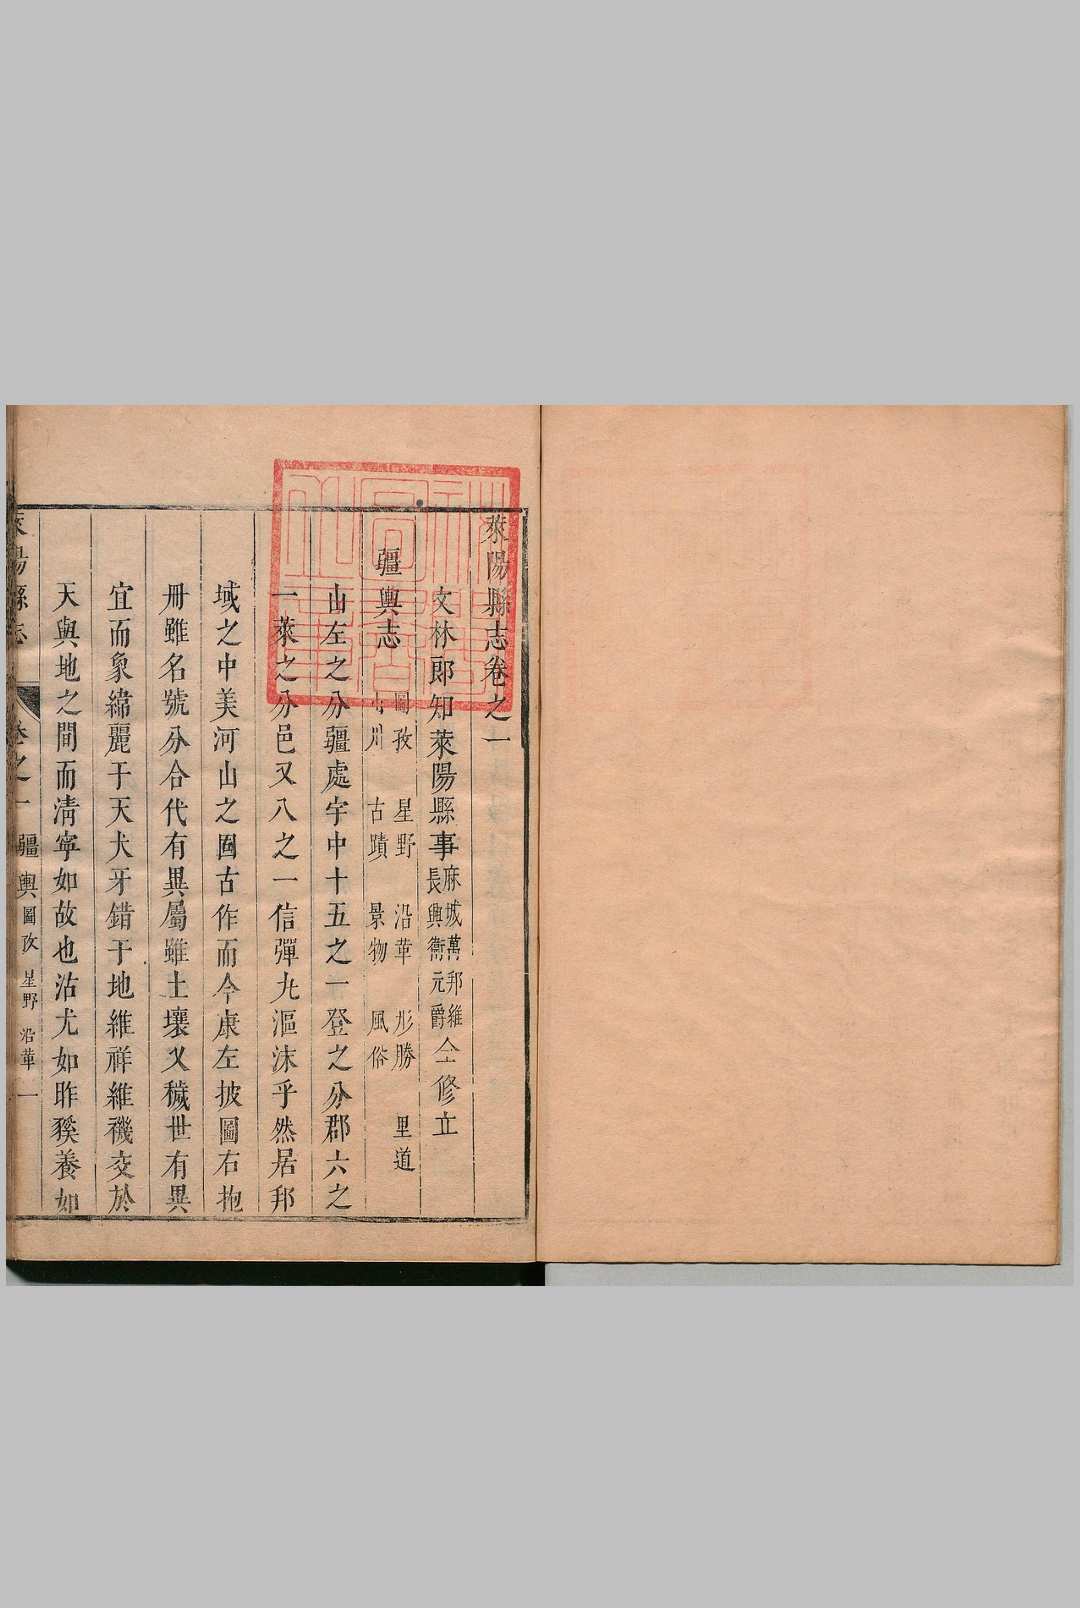 萊陽縣志卷之一
文林郎知萊陽縣事麻城萬邦維長興衞元爵仝修立
疆輿志 圖攷 星野 沿革 形勝 里道
山川 古蹟 景物 風俗
山左之分疆處宇中十五之一登之分郡六之
一萊之分邑又八之一信彈丸漚沫乎然居邦
域之中美河山之固古作而今康左披圖右抱
冊雖名號分合代有異屬雖土壤乂穢世有異
宜而象緯麗于天犬牙錯于地維祥維禨交於
天與地之間而淸寧如故也沽尤如昨豯養如
萊陽縣志 卷之一 疆輿 圖攷 星野 沿革 一